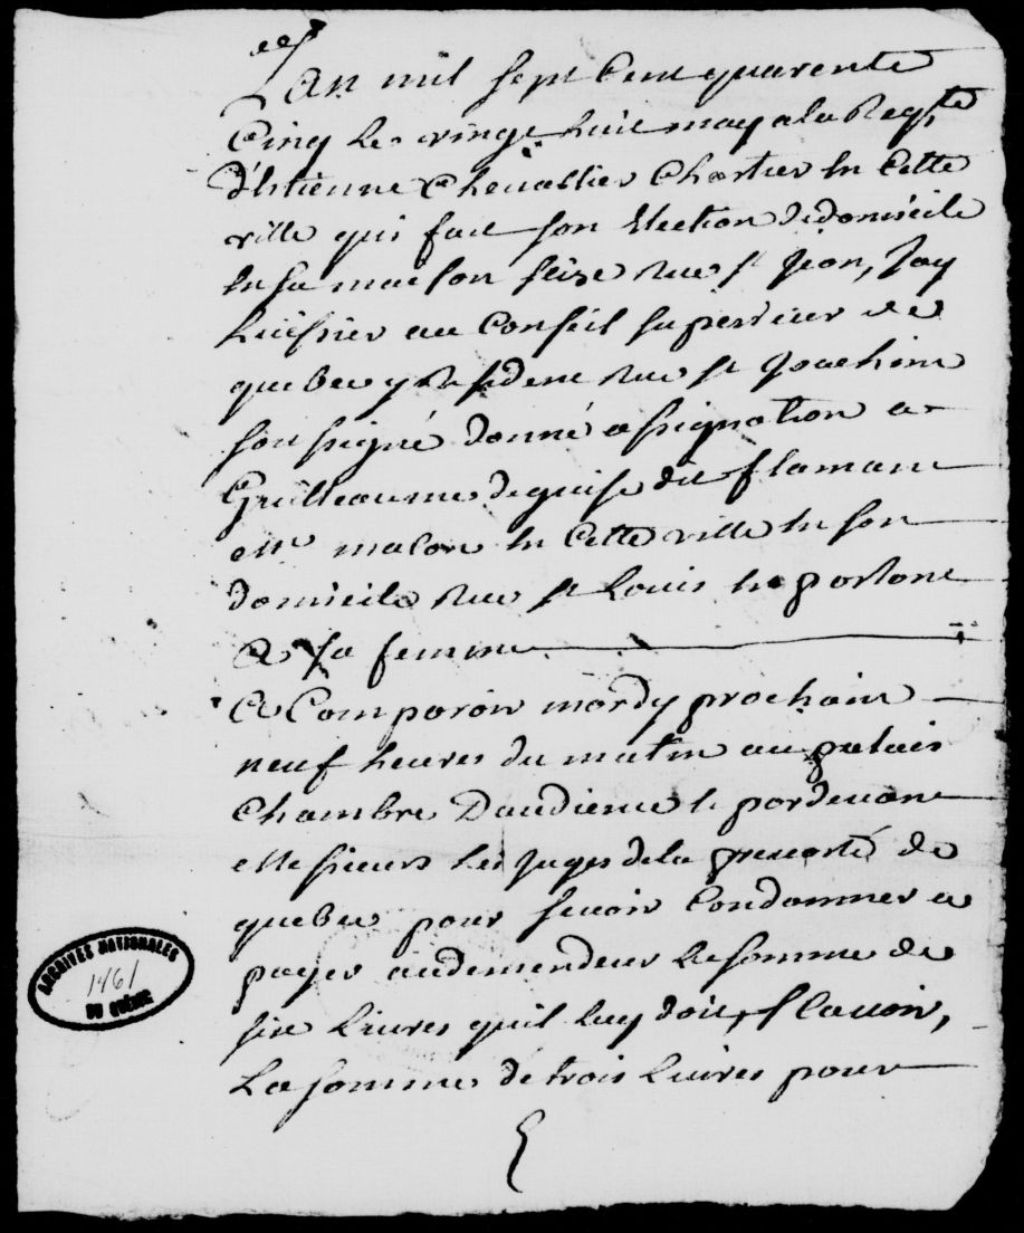 Lan mil sept cent quarente
Cinq le vingt huit may a la Reqte
d'Etienne Chevallier Chartier en Cette
ville qui fait son Election de domicile
en sa maison scize rue st Jean, Jay
huissier au Conseil superieur de
quebec y Residant rue st Joachim
sousigné donné assignation a
Guilleaume deguise dit flamant
Me masson en Cette ville en son
domicile rue st Louis en parlant
a sa femme
a Comparoir mardy prochain
neuf heures du matin au palais
Chambre Daudience et pardevant
Messieurs les juges de la prevosté de
quebec pour se voir Condamner a
payer au demendeur la somme de
six Livres quil luy doit, scavoir,
La somme de trois livres pour
ARCHIVES NATIONALES
1461
DU QUÉBEC